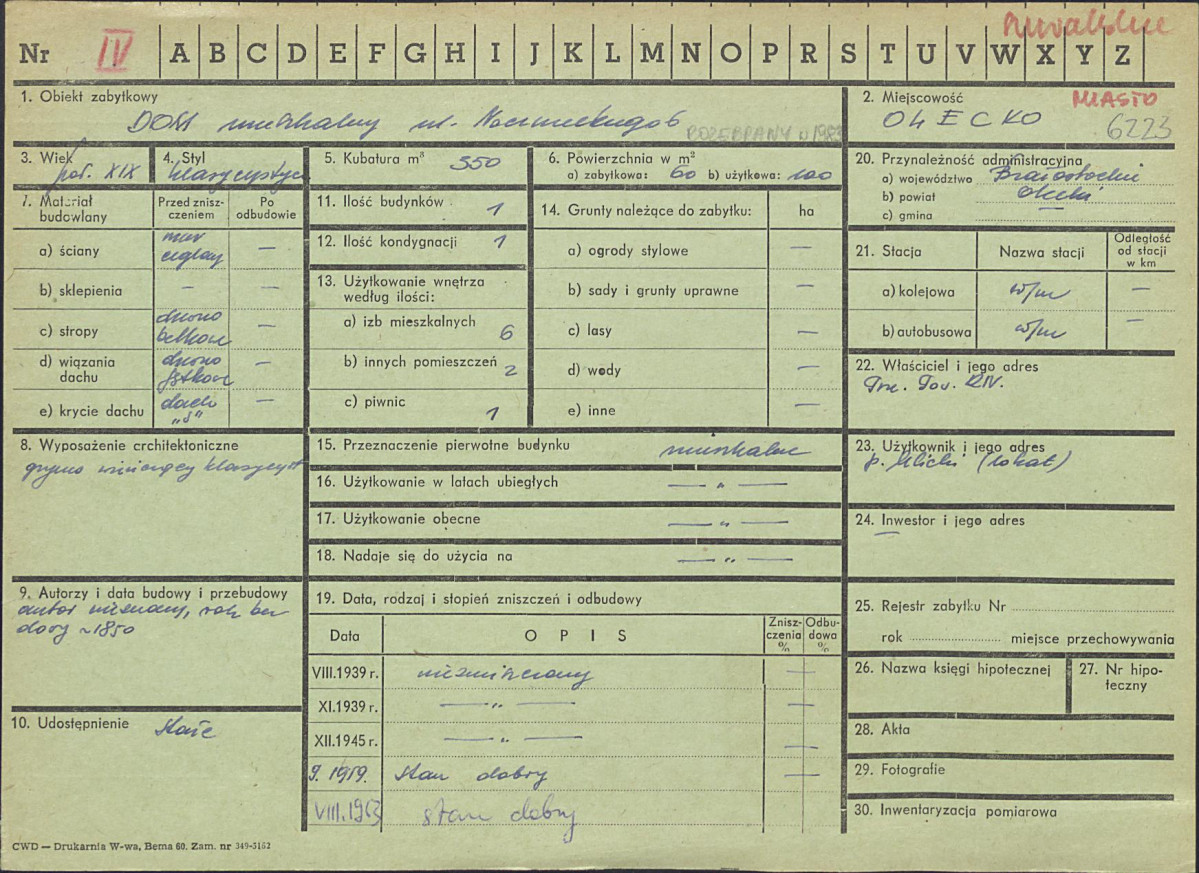 Suwalskie
Nr IV A B C D E F G H I J K L M N O P R S T U V W X Y Z
1. Obiekt zabytkowy
DOM mieszkalny ul.
ROZEBRANY
2. Miejscowość MIASTO
OLECKO 6223
3. Wiek
poł. XIX
4. Styl
klasycystycz
5. Kubatura m³ 550
6. Powierzchnia w m²
a) zabytkowa: 60 b) użytkowa: 100
20. Przynależność administracyjna
a) województwo Białostockie
b) powiat olecki
c) gmina
7. Materiał budowlany
Przed znisz-czeniem
Po odbudowie
a) ściany mur ceglany —
b) sklepienia — —
c) stropy drewno belkowe —
d) wiązania dachu drewno —
e) krycie dachu dach. „S" —
11. Ilość budynków 1
12. Ilość kondygnacji 1
13. Użytkowanie wnętrza
według ilości:
a) izb mieszkalnych 6
b) innych pomieszczeń 2
c) piwnic 1
14. Grunty należące do zabytku: ha
a) ogrody stylowe —
b) sady i grunty uprawne —
c) lasy —
d) wody —
e) inne —
21. Stacja Nazwa stacji Odległość od stacji w km
a) kolejowa w/m —
b) autobusowa w/m —
22. Właściciel i jego adres
8. Wyposażenie architektoniczne
gzyms wieńczący klasycyst
15. Przeznaczenie pierwotne budynku mieszkalne
16. Użytkowanie w latach ubiegłych — „ —
17. Użytkowanie obecne — „ —
18. Nadaje się do użycia na — „ —
23. Użytkownik i jego adres
p. (lokat)
24. Inwestor i jego adres
—
9. Autorzy i data budowy i przebudowy
autor nieznany, rok bu-
dowy ~1850
19. Data, rodzaj i stopień zniszczeń i odbudowy
Data OPIS Znisz-czenia % Odbu-dowa %
VIII.1939 r. niezniszczony —
XI.1939 r. — „ —
XII.1945 r. — „ — —
9. 1959. stan dobry —
VIII.1963 stan dobry
25. Rejestr zabytku Nr
rok miejsce przechowywania
26. Nazwa księgi hipotecznej
27. Nr hipo-
teczny
10. Udostępnienie stałe
28. Akta
29. Fotografie
30. Inwentaryzacja pomiarowa
CWD — Drukarnia W-wa, Bema 60. Zam. nr 349-5162